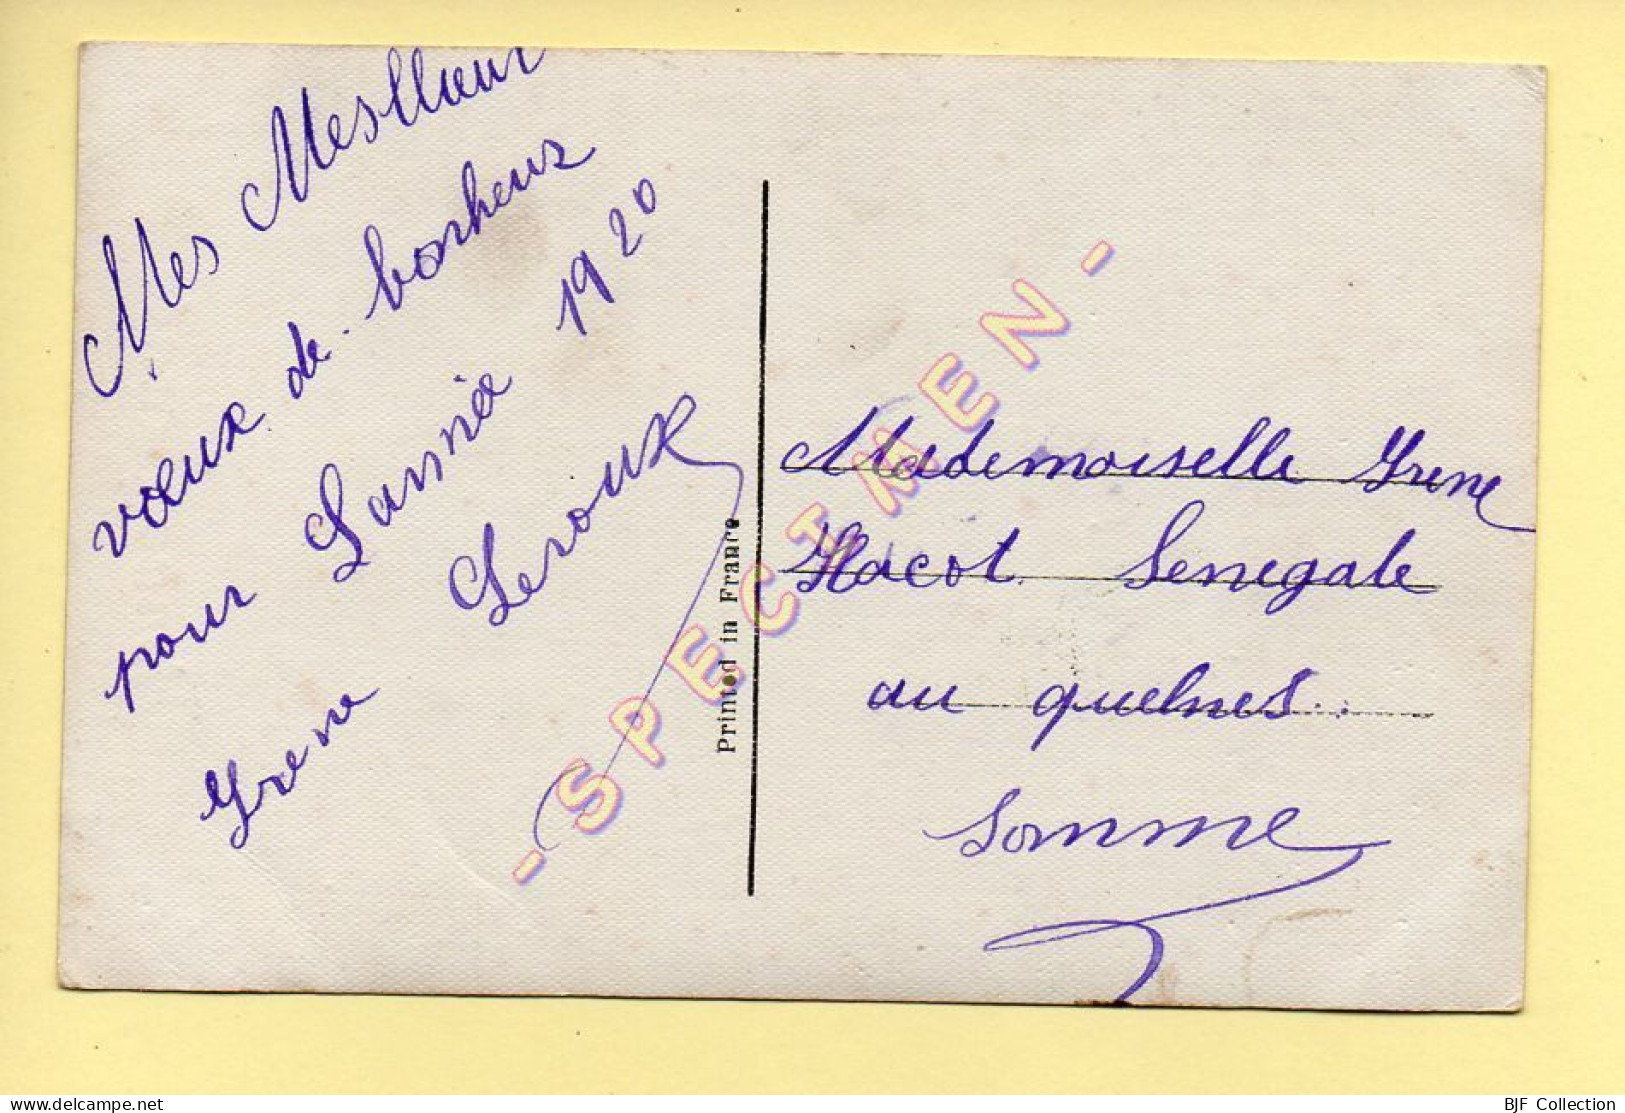 Mes Meslleur
vœux de bonheur
pour Lannée 1920
Yrene Leroux
Printed in France
Mademoiselle Yrene
Hacot Senegale
au quelnes
Somme
- SPECIMEN -
BJF Collection
delcampe.net